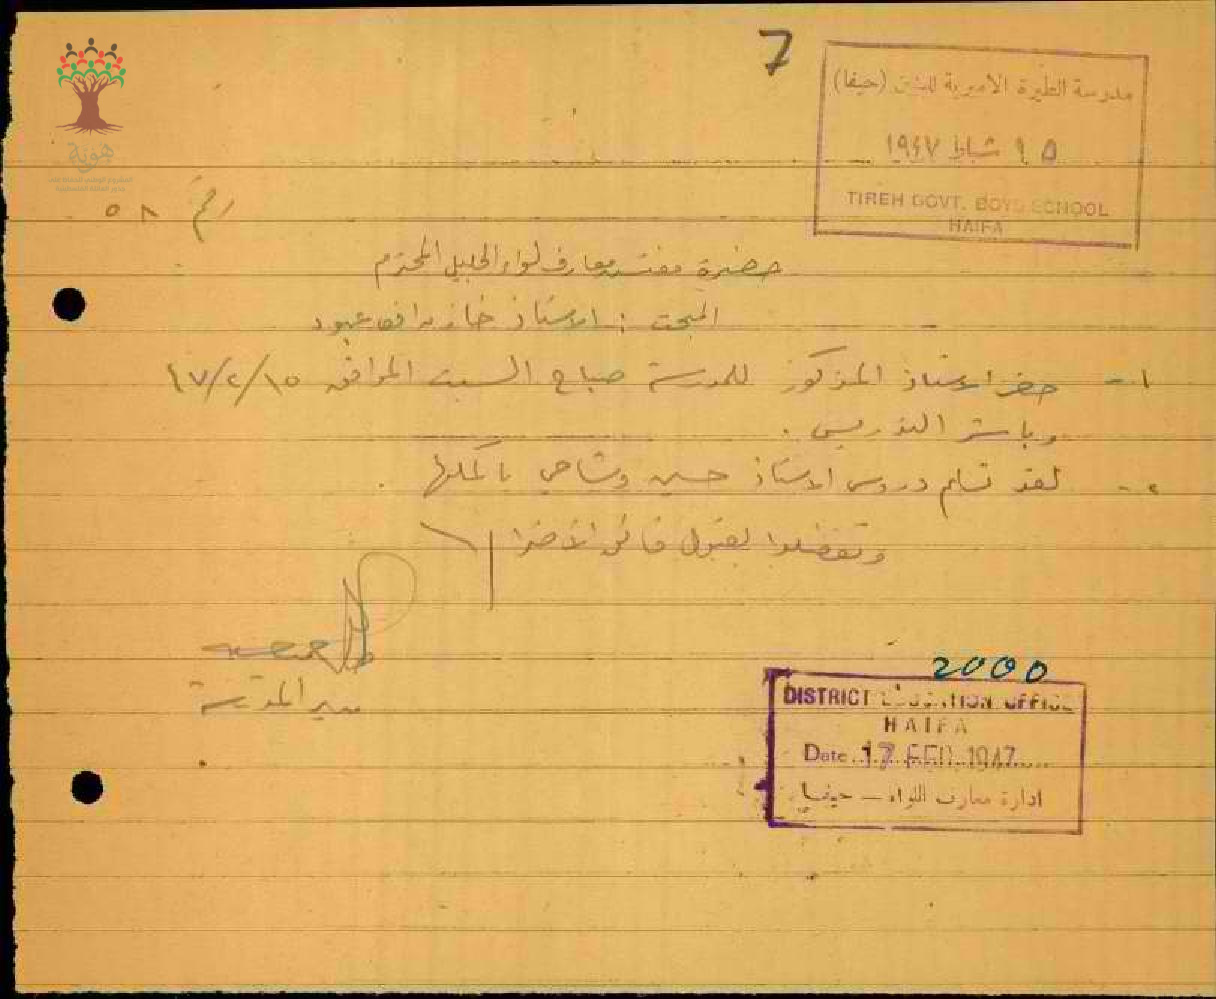 7
مدرسة الطيرة الاميرية للبنين (حيفا)
١٥ شباط ١٩٤٧
TIREH GOVT. BOYS SCHOOL
HAIFA
هوية
رقم ٥٨
حضرة مفتش معارف لواء الجليل المحترم
المبحث : الاستاذ عبود
١- حضر الاستاذ المذكور للمدرسة صباح السبت الموافق ٤٧/٢/١٥
وباشر التدريس .
٢- لقد تسلم دروس الاستاذ حسين وشاحي باكملها .
وتفضلوا بقبول فائق الاحترام
مدير المدرسة
2000
DISTRICT EDUCATION OFFICE
HAIFA
Date 17 FEB 1947
ادارة معارف اللواء - حيفا